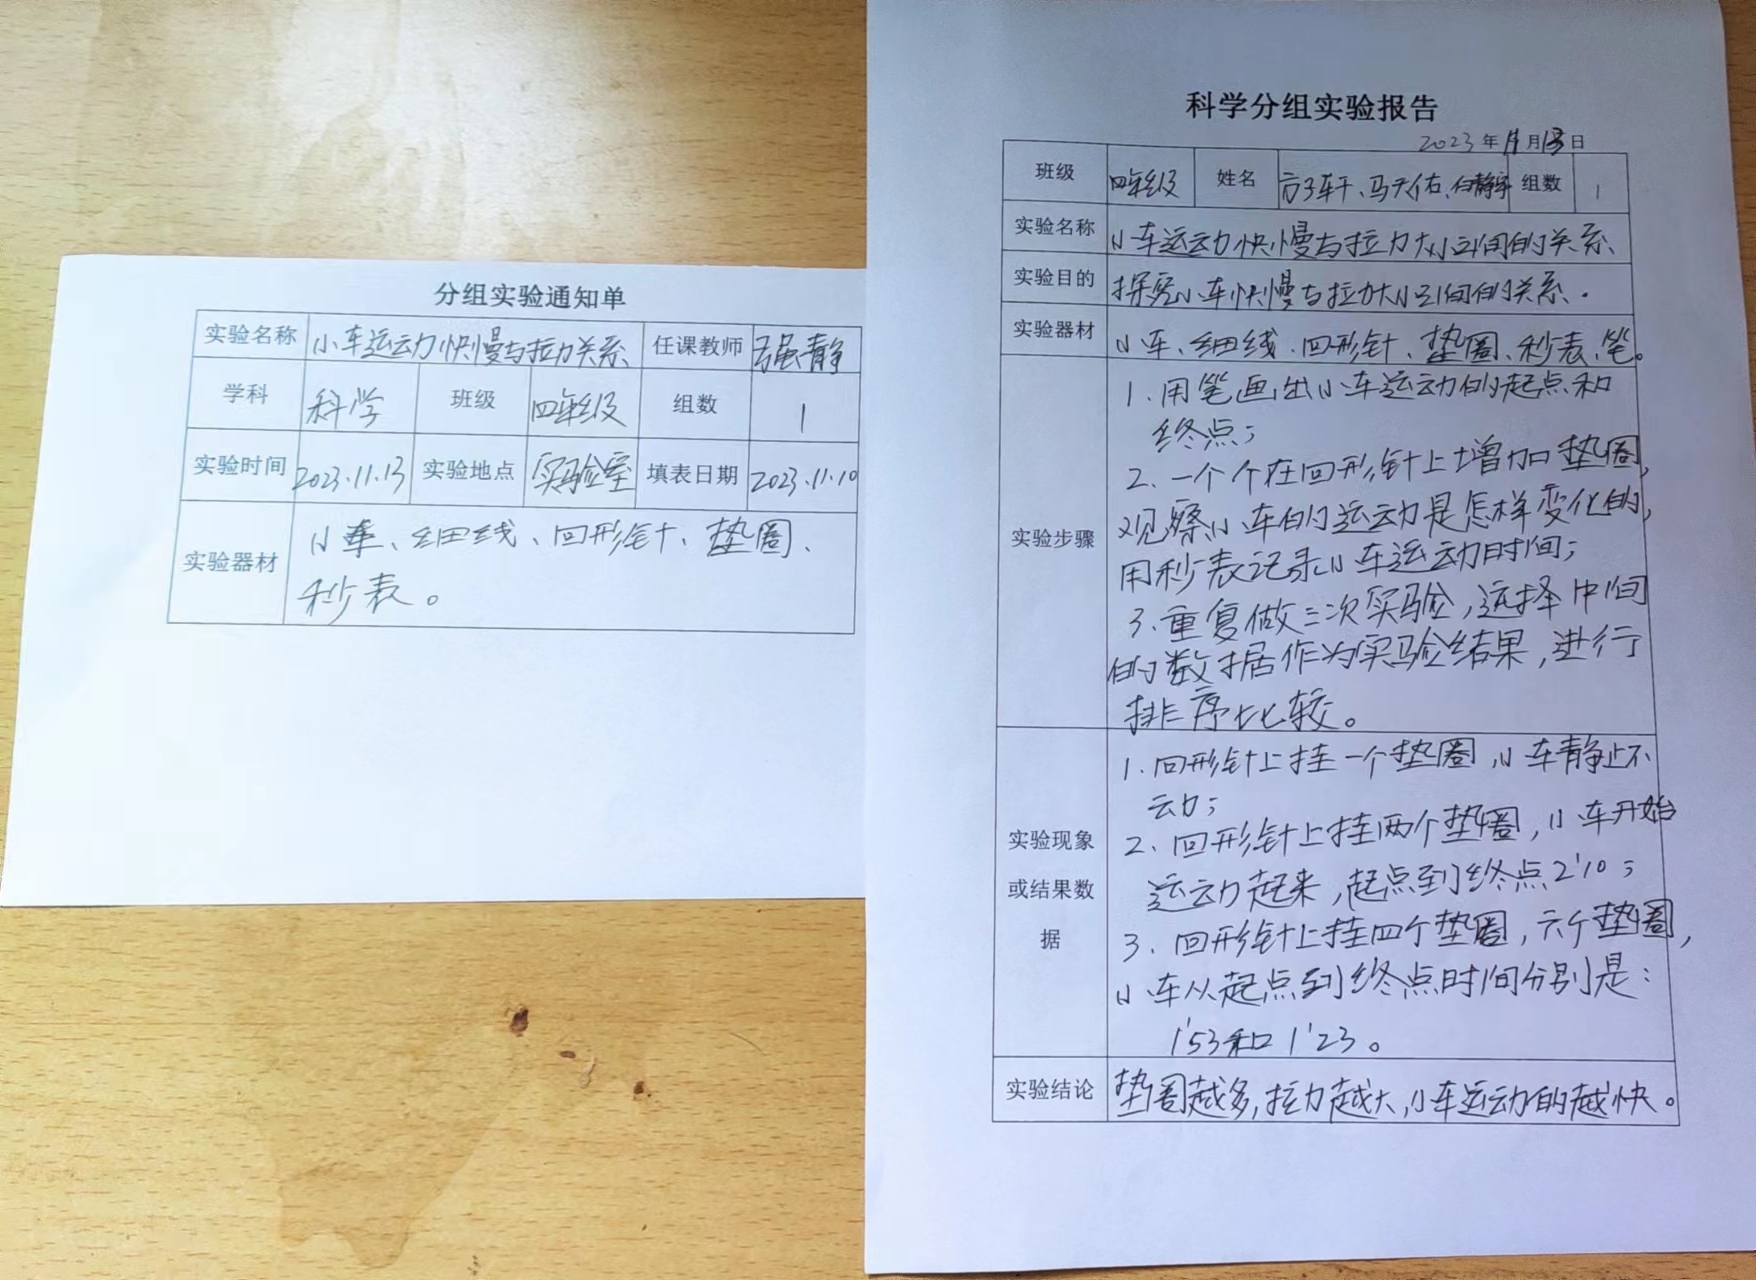 分组实验通知单
实验名称 小车运动快慢与拉力关系 任课教师 强静
学科 科学 班级 四年级 组数 1
实验时间 2023.11.13 实验地点 实验室 填表日期 2023.11.10
实验器材 小车、细线、回形针、垫圈、
秒表。
科学分组实验报告
2023年11月13日
班级 四年级 姓名 马天佑、 组数 1
实验名称 小车运动快慢与拉力大小之间的关系
实验目的 探究小车快慢与拉力大小之间的关系.
实验器材 小车、细线、回形针、垫圈、秒表、笔。
实验步骤
1.用笔画出小车运动的起点和
终点;
2.一个个在回形针上增加垫圈,
观察小车的运动是怎样变化的,
用秒表记录小车运动时间;
3.重复做三次实验,选择中间
的数据作为实验结果,进行
排序比较。
实验现象
或结果数
据
1.回形针上挂一个垫圈,小车静止不
动;
2.回形针上挂两个垫圈,小车开始
运动起来,起点到终点2'10;
3.回形针上挂四个垫圈,六个垫圈,
小车从起点到终点时间分别是:
1'53和1'23。
实验结论 垫圈越多,拉力越大,小车运动的越快。